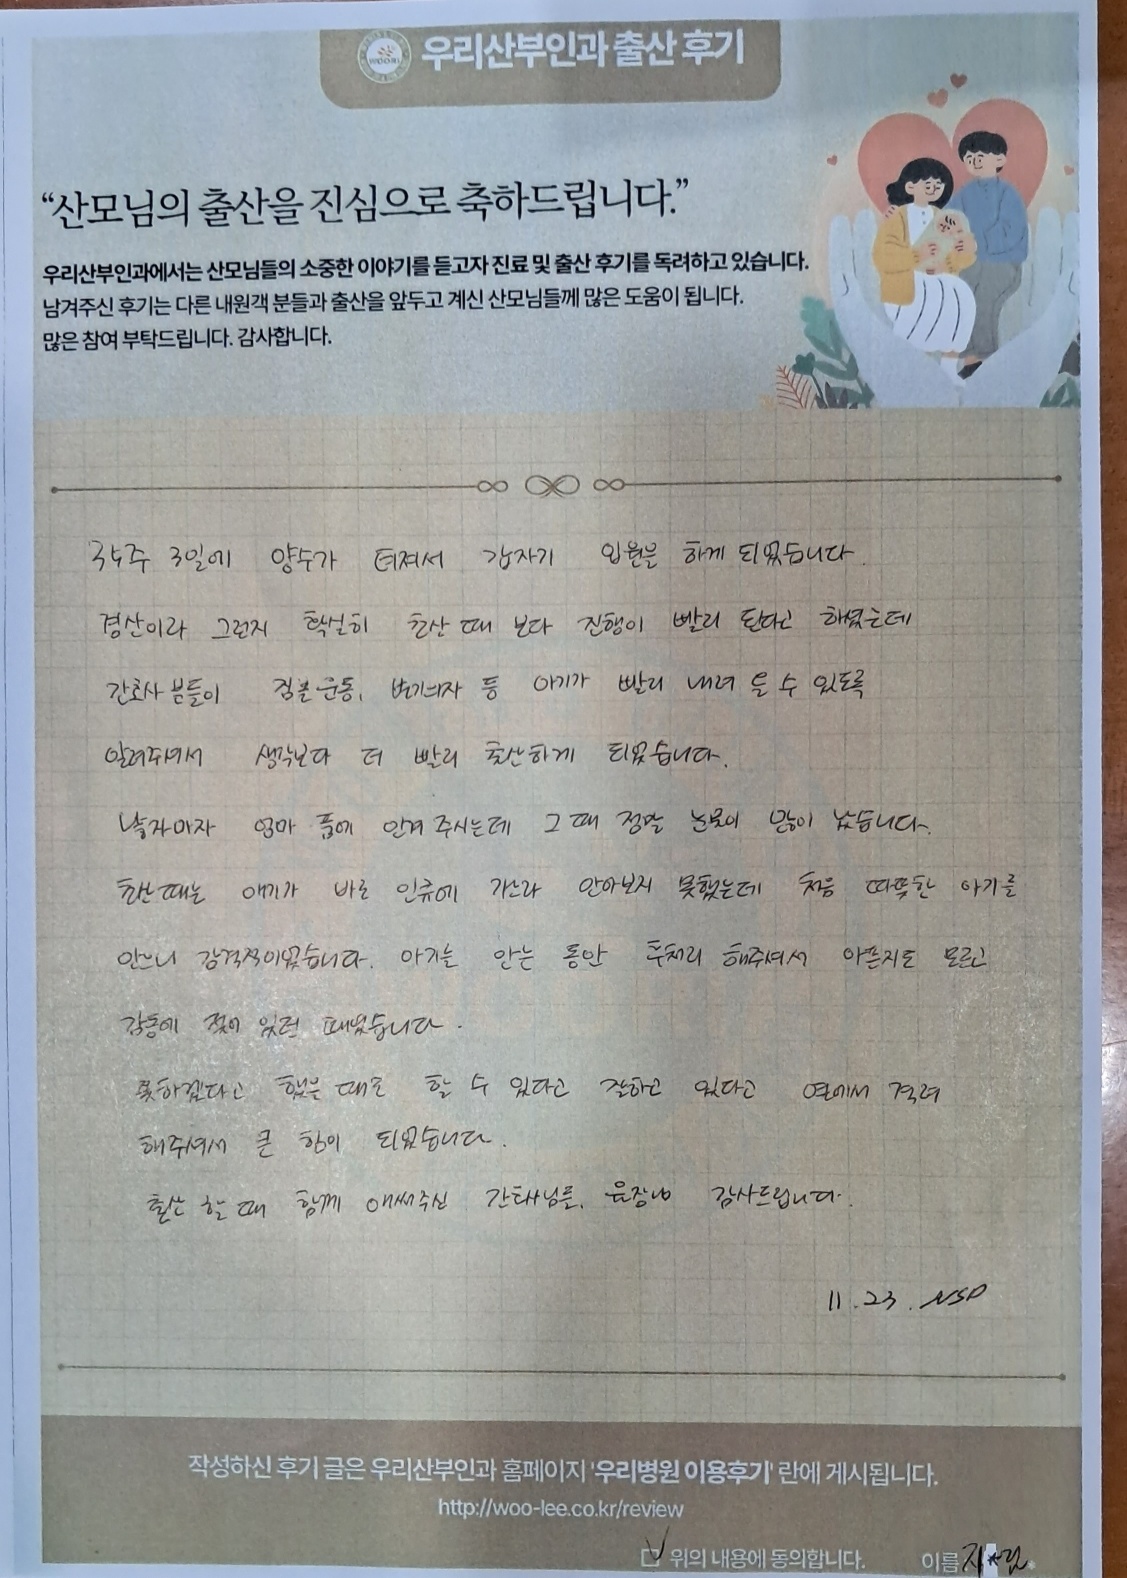 우리산부인과 출산 후기
“산모님의 출산을 진심으로 축하드립니다.”
우리산부인과에서는 산모님들의 소중한 이야기를 듣고자 진료 및 출산 후기를 독려하고 있습니다.
남겨주신 후기는 다른 내원객 분들과 출산을 앞두고 계신 산모님들께 많은 도움이 됩니다.
많은 참여 부탁드립니다. 감사합니다.
3일에 양수가 터져서 갑자기 입원을 하게 되었습니다.
경산이라 그런지 확실히 초산 때 보다 진행이 빨리 된다고 하였는데
간호사 분들이 짐볼운동, 변기의자 등 아기가 빨리 내려 올 수 있도록
알려주셔서 생각보다 더 빨리 출산하게 되었습니다.
낳자마자 엄마 품에 안겨 주시는데 그 때 정말 눈물이 많이 났습니다.
초산때는 애기가 바로 인큐에 가느라 안아보지 못했는데 처음 따뜻한 아기를
안으니 감격적이었습니다. 아기를 안는 동안 후처리 해주셔서 아픈지도 모르고
감동에 젖어 있던 때였습니다.
못하겠다고 했을 때도 할 수 있다고 잘하고 있다고 옆에서 격려
해주셔서 큰 힘이 되었습니다.
출산 할 때 함께 애써주신 감사드립니다.
11.23. NSD
작성하신 후기 글은 우리산부인과 홈페이지 '우리병원 이용후기' 란에 게시됩니다.
http://woo-lee.co.kr/review
위의 내용에 동의합니다. 이름